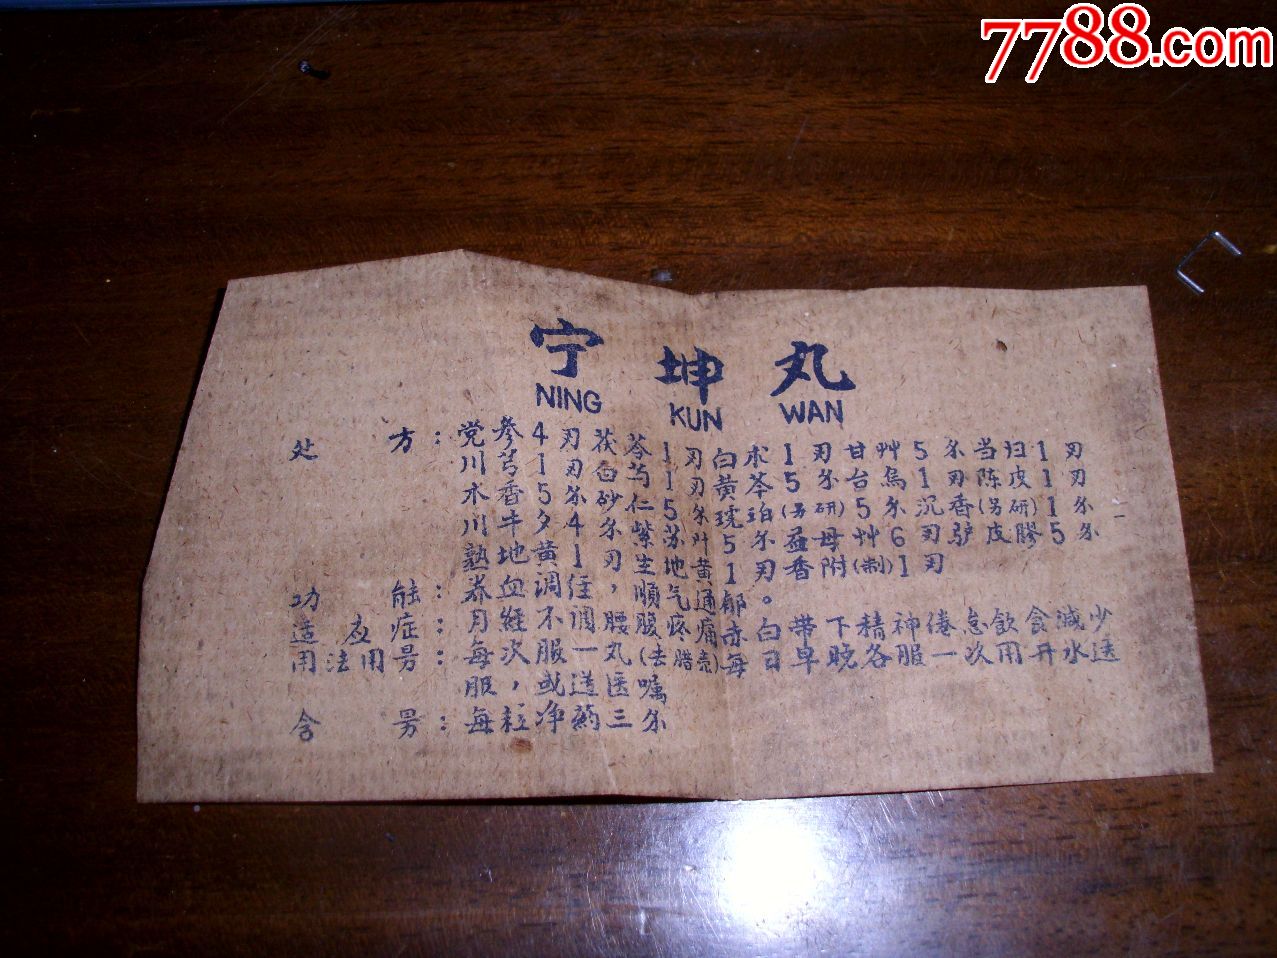 7788.com
宁坤丸
NING KUN WAN
处方:党参4刃茯苓1刃白术1刃甘艸5尒当归1刃
川芎1刃白芍1刃黄芩5尒台乌1刃陈皮1刃
木香5尒砂仁5尒琥珀(另研)5尒沉香(另研)1尒
川牛夕4尒紫苏叶5尒益母艸6刃驴皮膠5尒
熟地黄1刃生地黄1刃香附(制)1刃
功能:养血调经,順气通郁。
适应症:月經不调,腰腹疼痛赤白带下精神倦怠飲食減少
用法用量:每次服一丸(去腊壳)每日早晚各服一次用开水送
服,或遵医嘱
含量:每粒净葯三尒